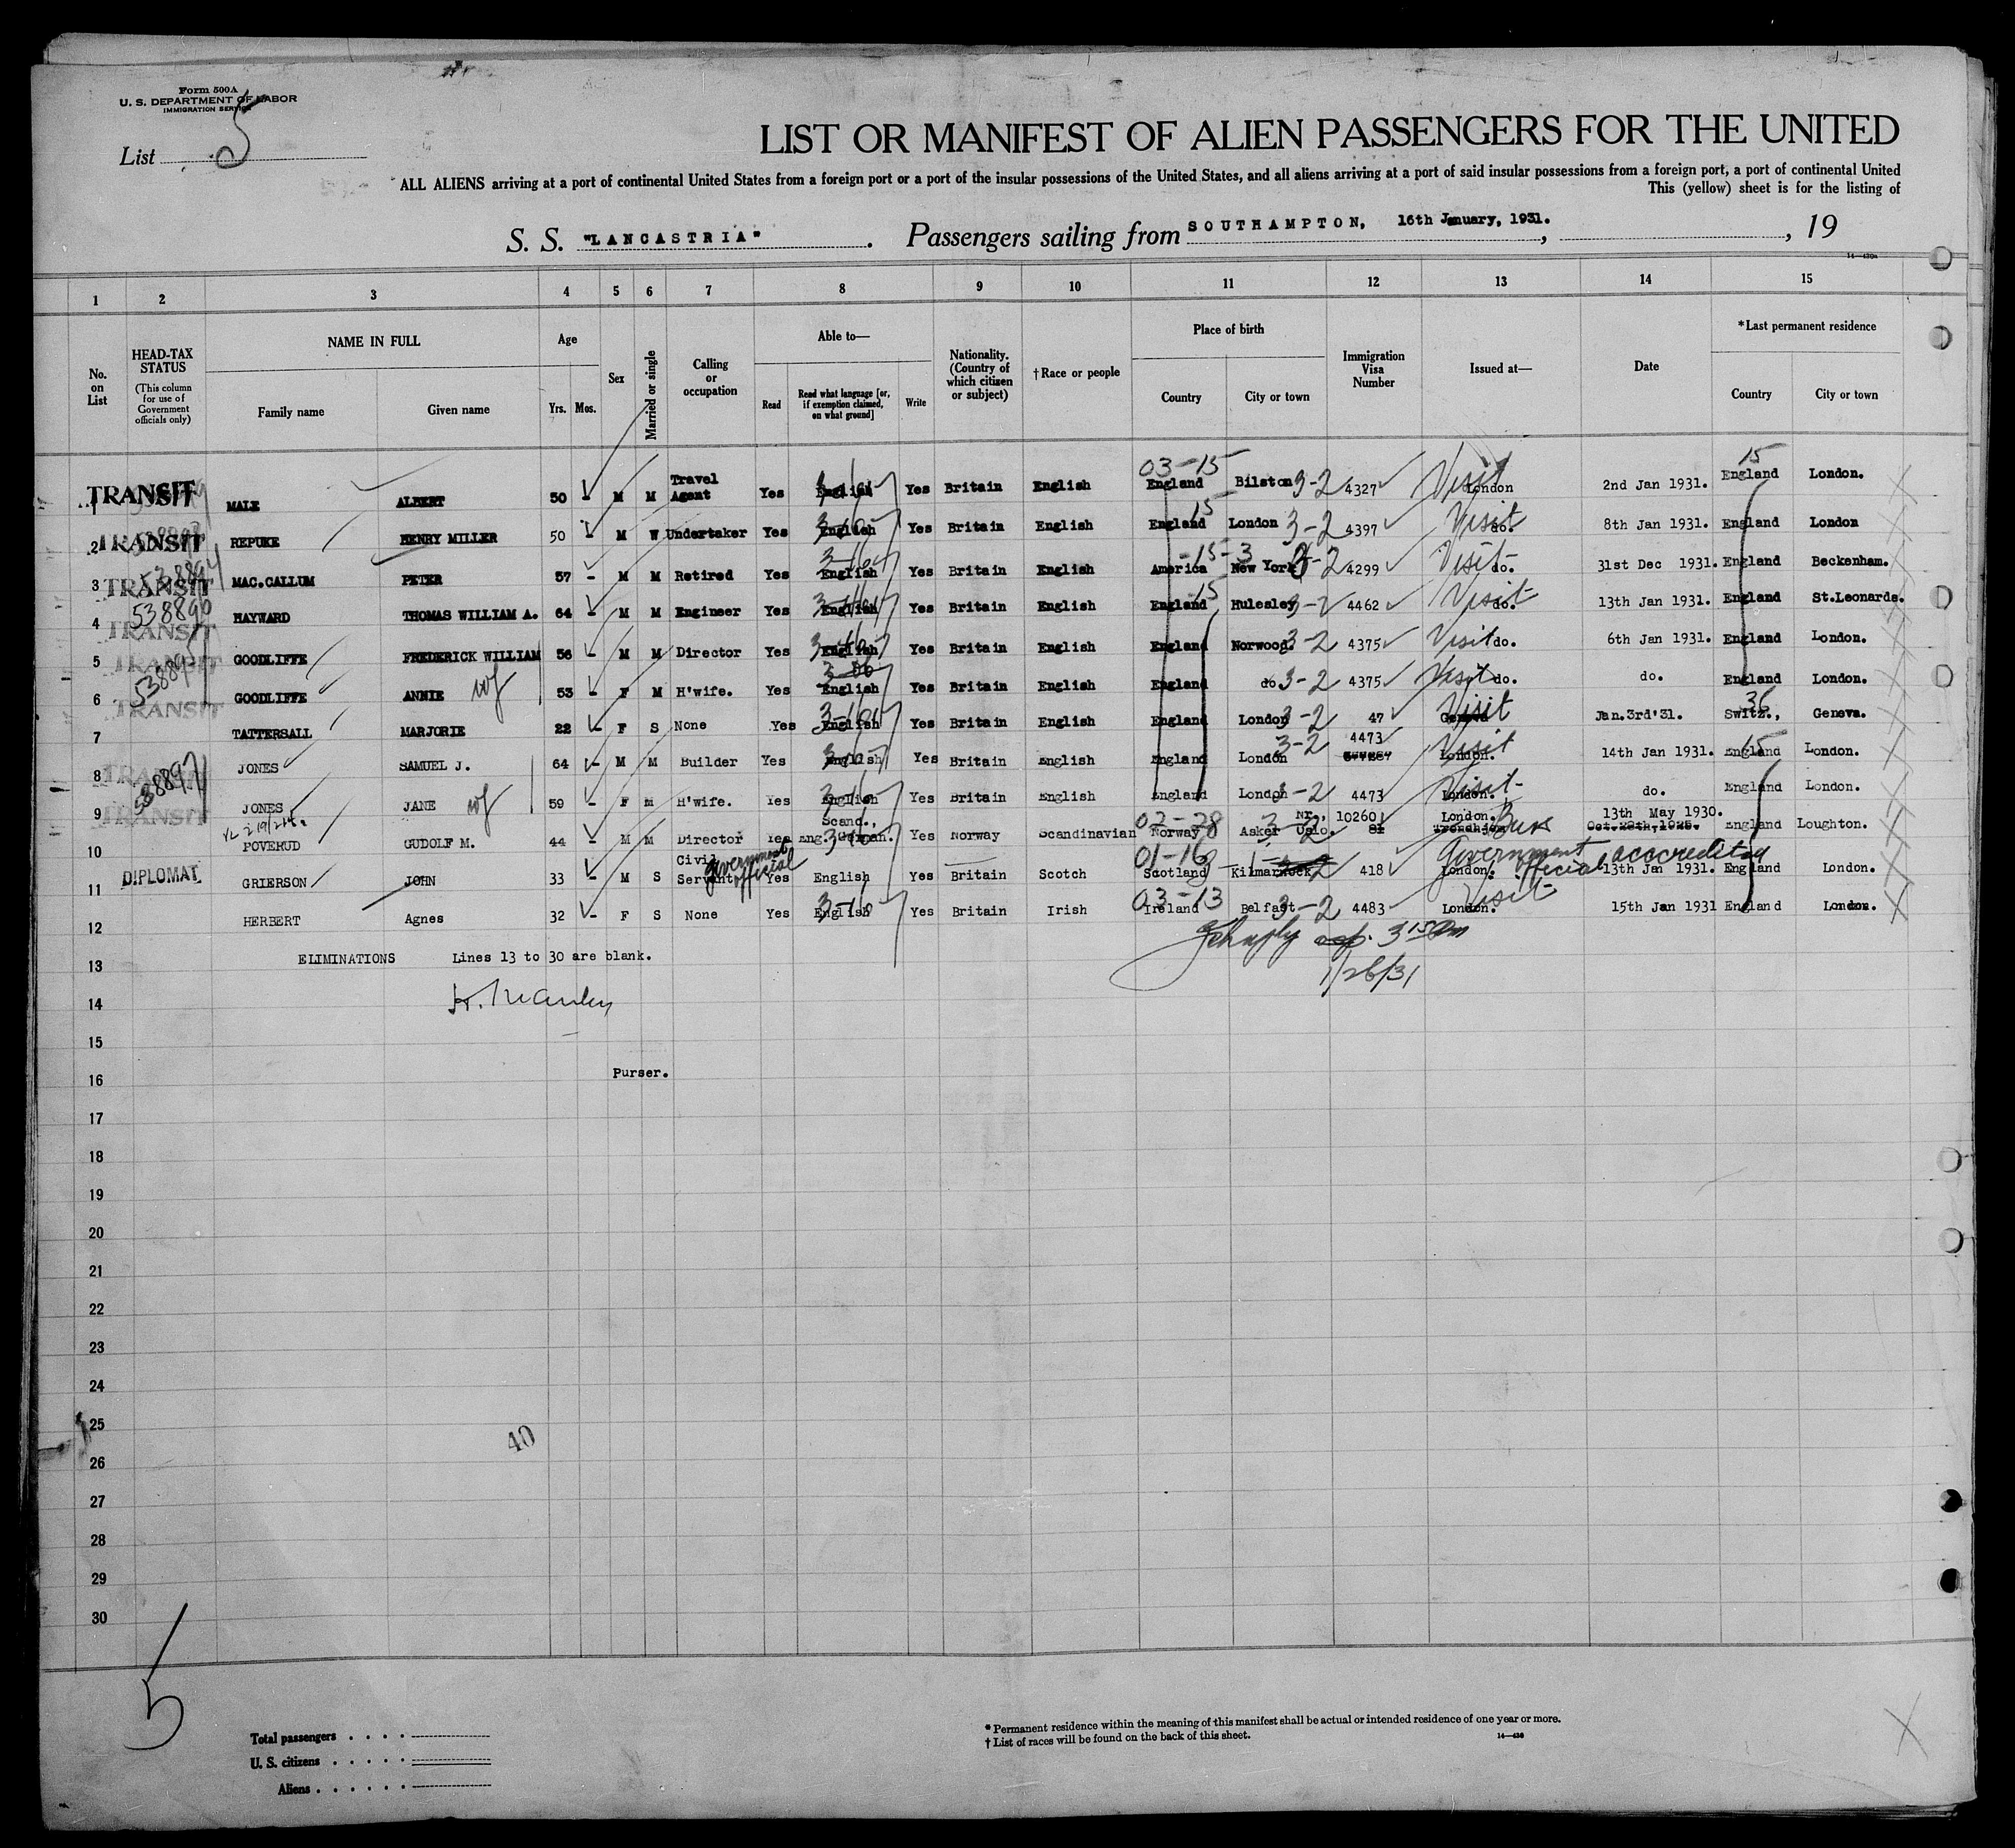 Form 500A
U. S. DEPARTMENT OF LABOR
IMMIGRATION SERVICE
List 5
LIST OR MANIFEST OF ALIEN PASSENGERS FOR THE UNITED
ALL ALIENS arriving at a port of continental United States from a foreign port or a port of the insular possessions of the United States, and all aliens arriving at a port of said insular possessions from a foreign port, a port of continental United
This (yellow) sheet is for the listing of
S. S. "LANCASTRIA". Passengers sailing from SOUTHAMPTON, 16th January, 1931. , 19
1 2 3 4 5 6 7 8 9 10 11 12 13 14 15
No. on List
HEAD-TAX STATUS (This column for use of Government officials only)
NAME IN FULL Family name Given name
Age Yrs. Mos.
Sex
Married or single
Calling or occupation
Able to— Read Read what language [or, if exemption claimed, on what ground] Write
Nationality. (Country of which citizen or subject)
†Race or people
Place of birth Country City or town
Immigration Visa Number
Issued at—
Date
*Last permanent residence Country City or town
1 TRANSIT MALE ALBERT 50 - M M Travel Agent Yes English Yes Britain English 03-15 England Bilston 3-2 4327 Visit London 2nd Jan 1931. 15 England London.
2 TRANSIT REPUKE HENRY MILLER 50 - M W Undertaker Yes English Yes Britain English 15 England London 3-2 4397 Visit do. 8th Jan 1931. England London
3 TRANSIT 538894 MAC.CALLUM PETER 57 - M M Retired Yes English Yes Britain English 15-3 America New York 3-2 4299 Visit do. 31st Dec 1931. England Beckenham.
4 TRANSIT 538896 HAYWARD THOMAS WILLIAM A. 64 - M M Engineer Yes English Yes Britain English 15 England Hulesley 3-2 4462 Visit do. 13th Jan 1931. England St.Leonards.
5 TRANSIT GOODLIFFE FREDERICK WILLIAM 56 - M M Director Yes English Yes Britain English England Norwood. 3-2 4375 Visit do. 6th Jan 1931. England London.
6 GOODLIFFE ANNIE wf 53 - F M H'wife. Yes English Yes Britain English England do 3-2 4375 Visit do. do. England London.
7 TRANSIT TATTERSALL MARJORIE 22 - F S None Yes English Yes Britain English England London 3-2 47 Visit Geneva Jan.3rd'31. 36 Switz., Geneva.
8 TRANSIT JONES SAMUEL J. 64 - M M Builder Yes English Yes Britain English England London 3-2 4473 Visit London. 14th Jan 1931. 15 England London.
9 TRANSIT 538897 JONES JANE wf 59 - F M H'wife. Yes English Yes Britain English England London 3-2 4473 Visit London. do. England London.
10 POVERUD GUDOLF M. 44 - M M Director Yes Scand., Eng. German. Yes Norway Scandinavian 02-28 Norway Asker Nr., Oslo. 3-2 102601 81 London. Trondhjem Bus 13th May 1930. Oct.29th,1928. England Loughton.
11 DIPLOMAT GRIERSON JOHN 33 - M S Civil Servant Government official Yes English Yes Britain Scotch 01-16 Scotland Kilmarnock 418 London. Government official accredited 13th Jan 1931. England London.
12 HERBERT Agnes 32 - F S None Yes English Yes Britain Irish 03-13 Ireland Belfast 3-2 4483 Visit London. 15th Jan 1931 England London.
1/26/31
13 ELIMINATIONS Lines 13 to 30 are blank.
14
15
16 Purser.
17
18
19
20
21
22
23
24
25
40
26
27
28
29
30
5
Total passengers . . . .
U. S. citizens . . . . .
Aliens . . . . . .
* Permanent residence within the meaning of this manifest shall be actual or intended residence of one year or more.
† List of races will be found on the back of this sheet.
14—430